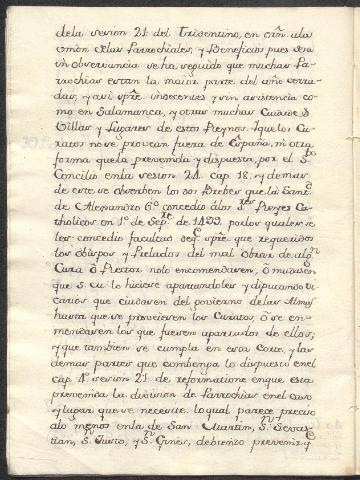 dela sesion 21. del Tridentino, en orñ. ala
vnion delas Parrochiales, y Beneficios pues desu
ynobservancia se ha seguido que muchas Pa-
rrochias estan la maior parte del año cerra-
das, y asi spre. indecentes y sin asistencia co-
mo en Salamanca, y otras muchas Ciudades
Villas y Lugares de estos Reynos. Aque los Cu-
ratos no se provean fuera de España. ni otra
forma que la prevenida y dispuesta, por el Sto.
Concilio en la sesion 24. cap. 18. y demas
de este se observen los dos Brebes que la Sand.
de Alexandro 6º concedio álos Sres. Reyes Ca-
tholicos en 1º de Sepre. de 1499. por los quales se
les concedio facultad de que spre. que requeridos
los obispos y Prelados del mal obrar de algn.
Cura ó Rector no lo encomendasen, ó mudasen
que S. M. lo hiciese apartandoles y diputando Vi-
carios que cuidasen del govierno delas Almas
hasta que se proveiesen los Curatos, ó se en-
mendasen los que fuesen apartados de ellos,
y que tambien se cumpla en esta Corte, y las
demas partes que combenga lo dispuesto en el
cap. 4º sesion 21. de reformatione en que esta
prevenida la division de Parrochias en el caso
y lugar que se necesite. lo qual parece preciso
alo menos en la de San Martin, Sn. Sevas-
tian, Sn. Justo, y Sn. Gines, debiento prevenir q